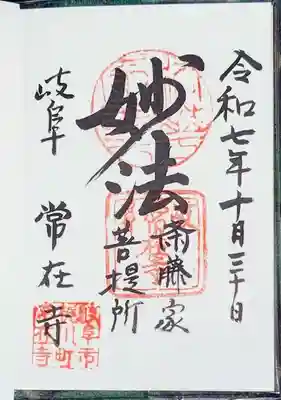 令和七年十月三十日
妙法
斎藤家
菩提所
岐阜 常在寺
岐阜市
川町
常在寺